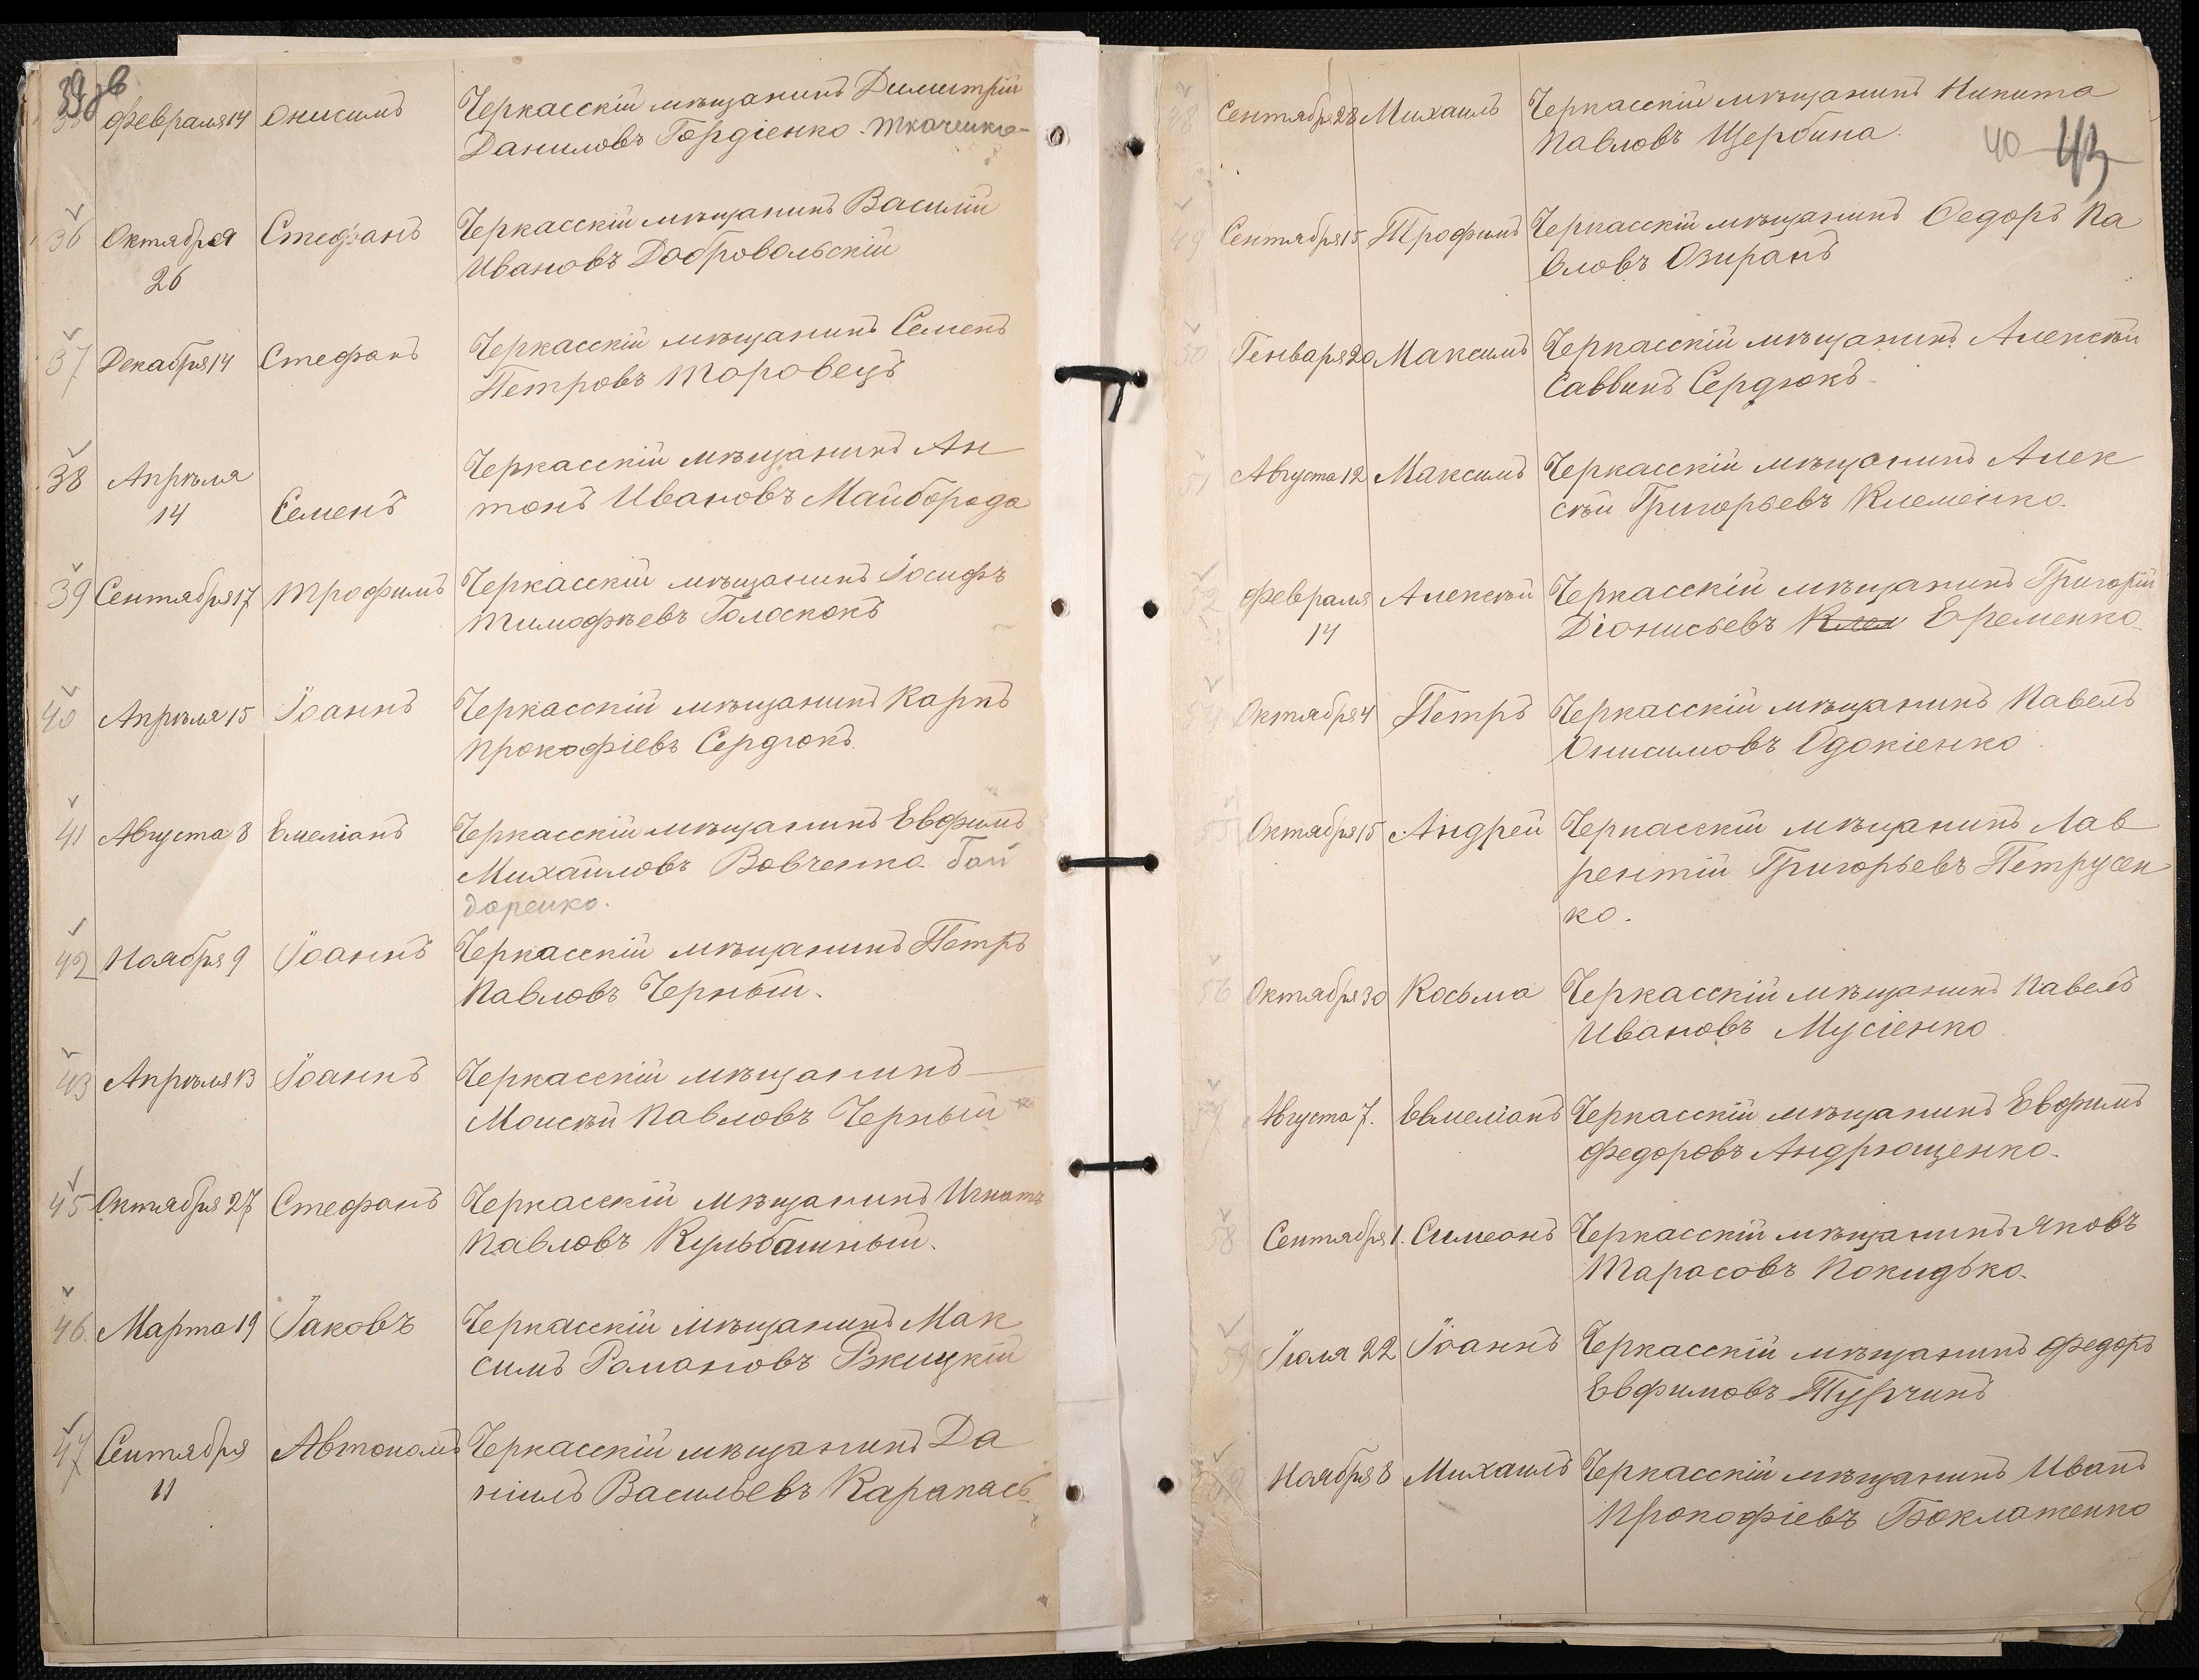 39 зв
35 Февраля 14 Онисимъ Черкасскій мѣщанинъ Димитрій
Даниловъ Гордіенко. Ткаченко
36 Октября Стефанъ Черкасскій мѣщанинъ Василій
26 Ивановъ Добровольскій
37 Декабря 14 Стефанъ Черкасскій мѣщанинъ Семенъ
Петровъ Таровецъ
38 Апрѣля Черкасскій мѣщанинъ Ан
14 Семенъ тонъ Ивановъ Майборода
39 Сентября 17 Трофимъ Черкасскій мѣщанинъ Іосифъ
Тимофѣевъ Голоскокъ
40 Апрѣля 15 Іоаннъ Черкасскій мѣщанинъ Карпъ
Прокофіевъ Сердюкъ.
41 Августа 8 Емеліанъ Черкасскій мѣщанинъ Евфимъ
Михайловъ Вовченко. Бон
даренко.
42 Ноября 9 Іоаннъ Черкасскій мѣщанинъ Петръ
Павловъ Черный.
43 Апрѣля 13 Іоаннъ Черкасскій мѣщанинъ
Моисѣй Павловъ Черный
45 Октября 27 Стефанъ Черкасскій мѣщанинъ Игнатъ
Павловъ Кульбашный.
46 Марта 19 Іаковъ Черкасскій мѣщанинъ Мак
симъ Романовъ Ржицкій
47 Сентября Автономъ Черкасскій мѣщанинъ Да
11 ніилъ Васильевъ Карапась
40 43
48 Сентября 28 Михаилъ Черкасскій мѣщанинъ Никита
Павловъ Щербина.
49 Сентября 15 Трофимъ Черкасскій мѣщанинъ Ѳедоръ Па
вловъ Озиранъ
50 Генваря 20 Максимъ Черкасскій мѣщанинъ Алексѣй
Саввинъ Сердюкъ.
51 Августа 12 Максимъ Черкасскій мѣщанинъ Алек
сѣй Григорьевъ Клеменко.
52 Февраля Алексѣй Черкасскій мѣщанинъ Григорій
14 Діонисьевъ Клем Еременко.
54 Октября 4 Петръ Черкасскій мѣщанинъ Павелъ
Онисимовъ Одокіенко
55 Октября 15 Андрей Черкасскій мѣщанинъ Лав
рентій Григорьевъ Петрусен
ко.
56 Октября 30 Косьма Черкасскій мѣщанинъ Павелъ
Ивановъ Мусіенко
57 Августа 7. Евмеліанъ Черкасскій мѣщанинъ Евфимъ
Федоровъ Андрющенко.
58 Сентября 1. Симеонъ Черкасскій мѣщанинъ Яковъ
Тарасовъ Покидько.
59 Іюля 22 Іоаннъ Черкасскій мѣщанинъ Федоръ
Евфимовъ Турчинъ
Ноября 8 Михаилъ Черкасскій мѣщанинъ Иванъ
Прокофіевъ Боклаженко